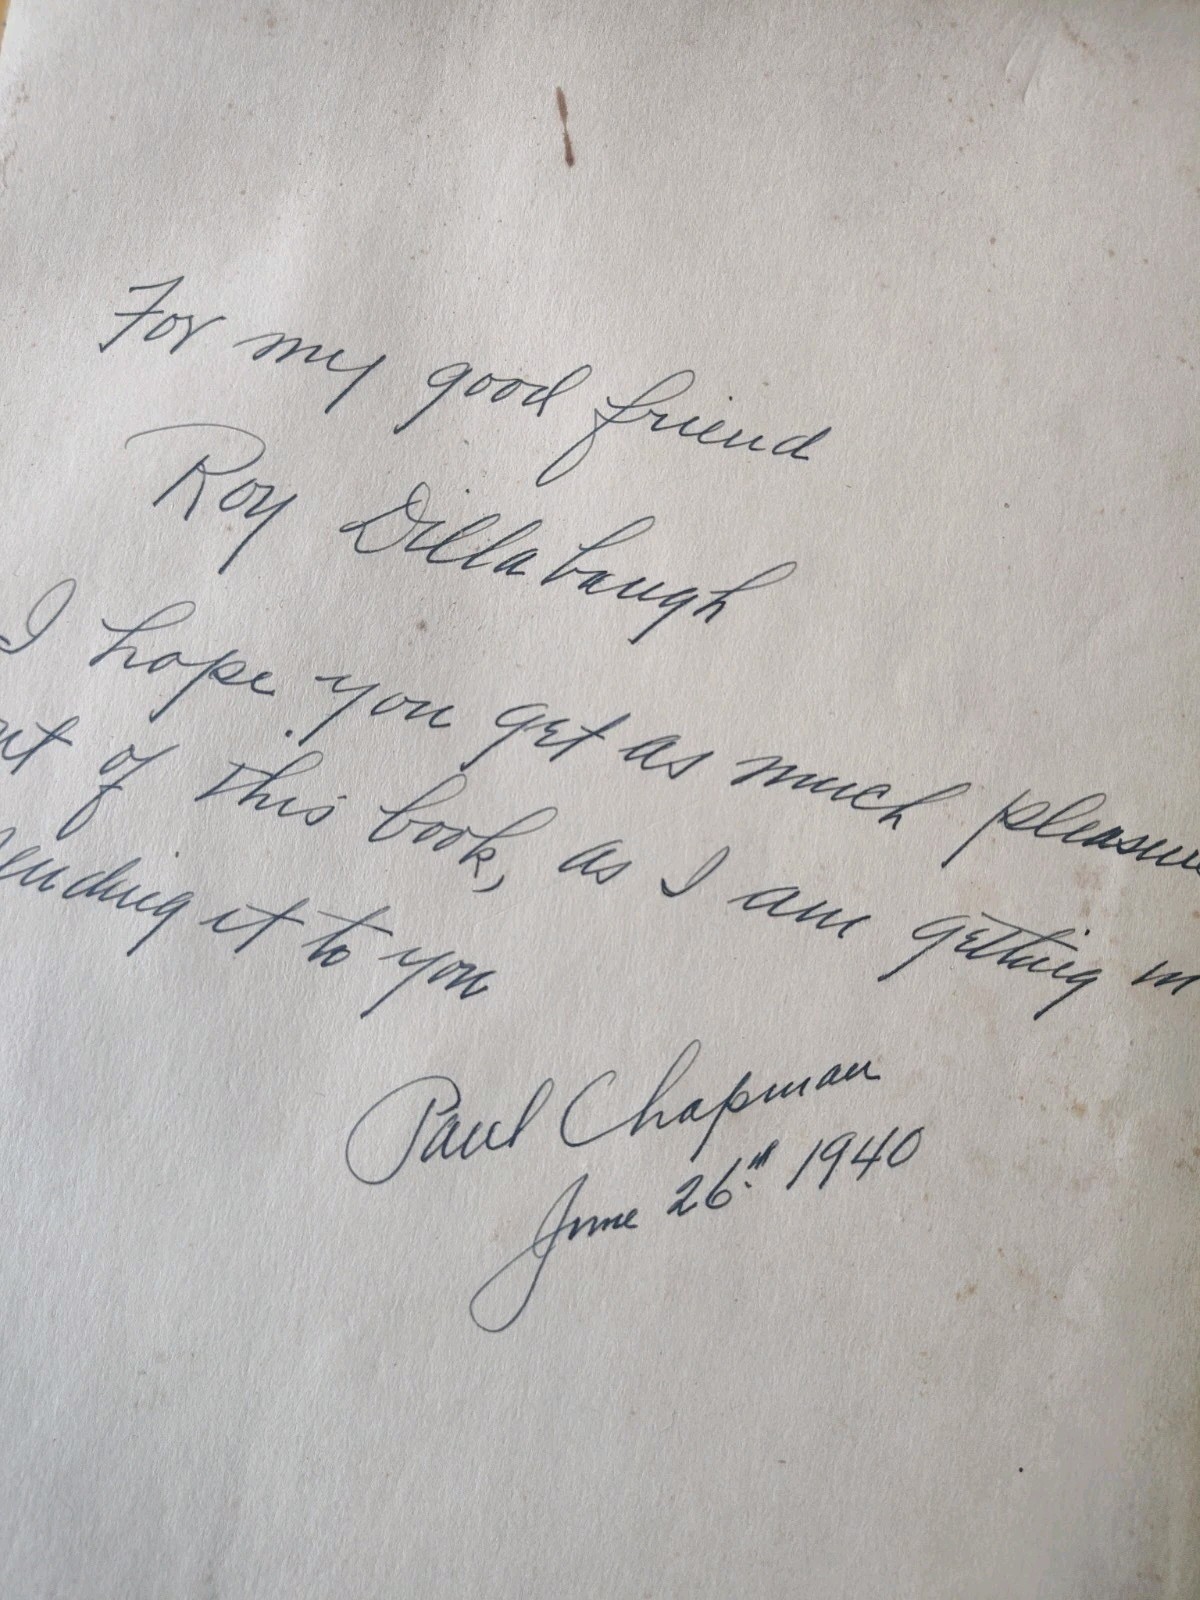 For my good friend
Roy Dillabaugh
I hope you get as much pleasure
out of this book, as I am getting in
sending it to you
Paul Chapman
June 26th 1940